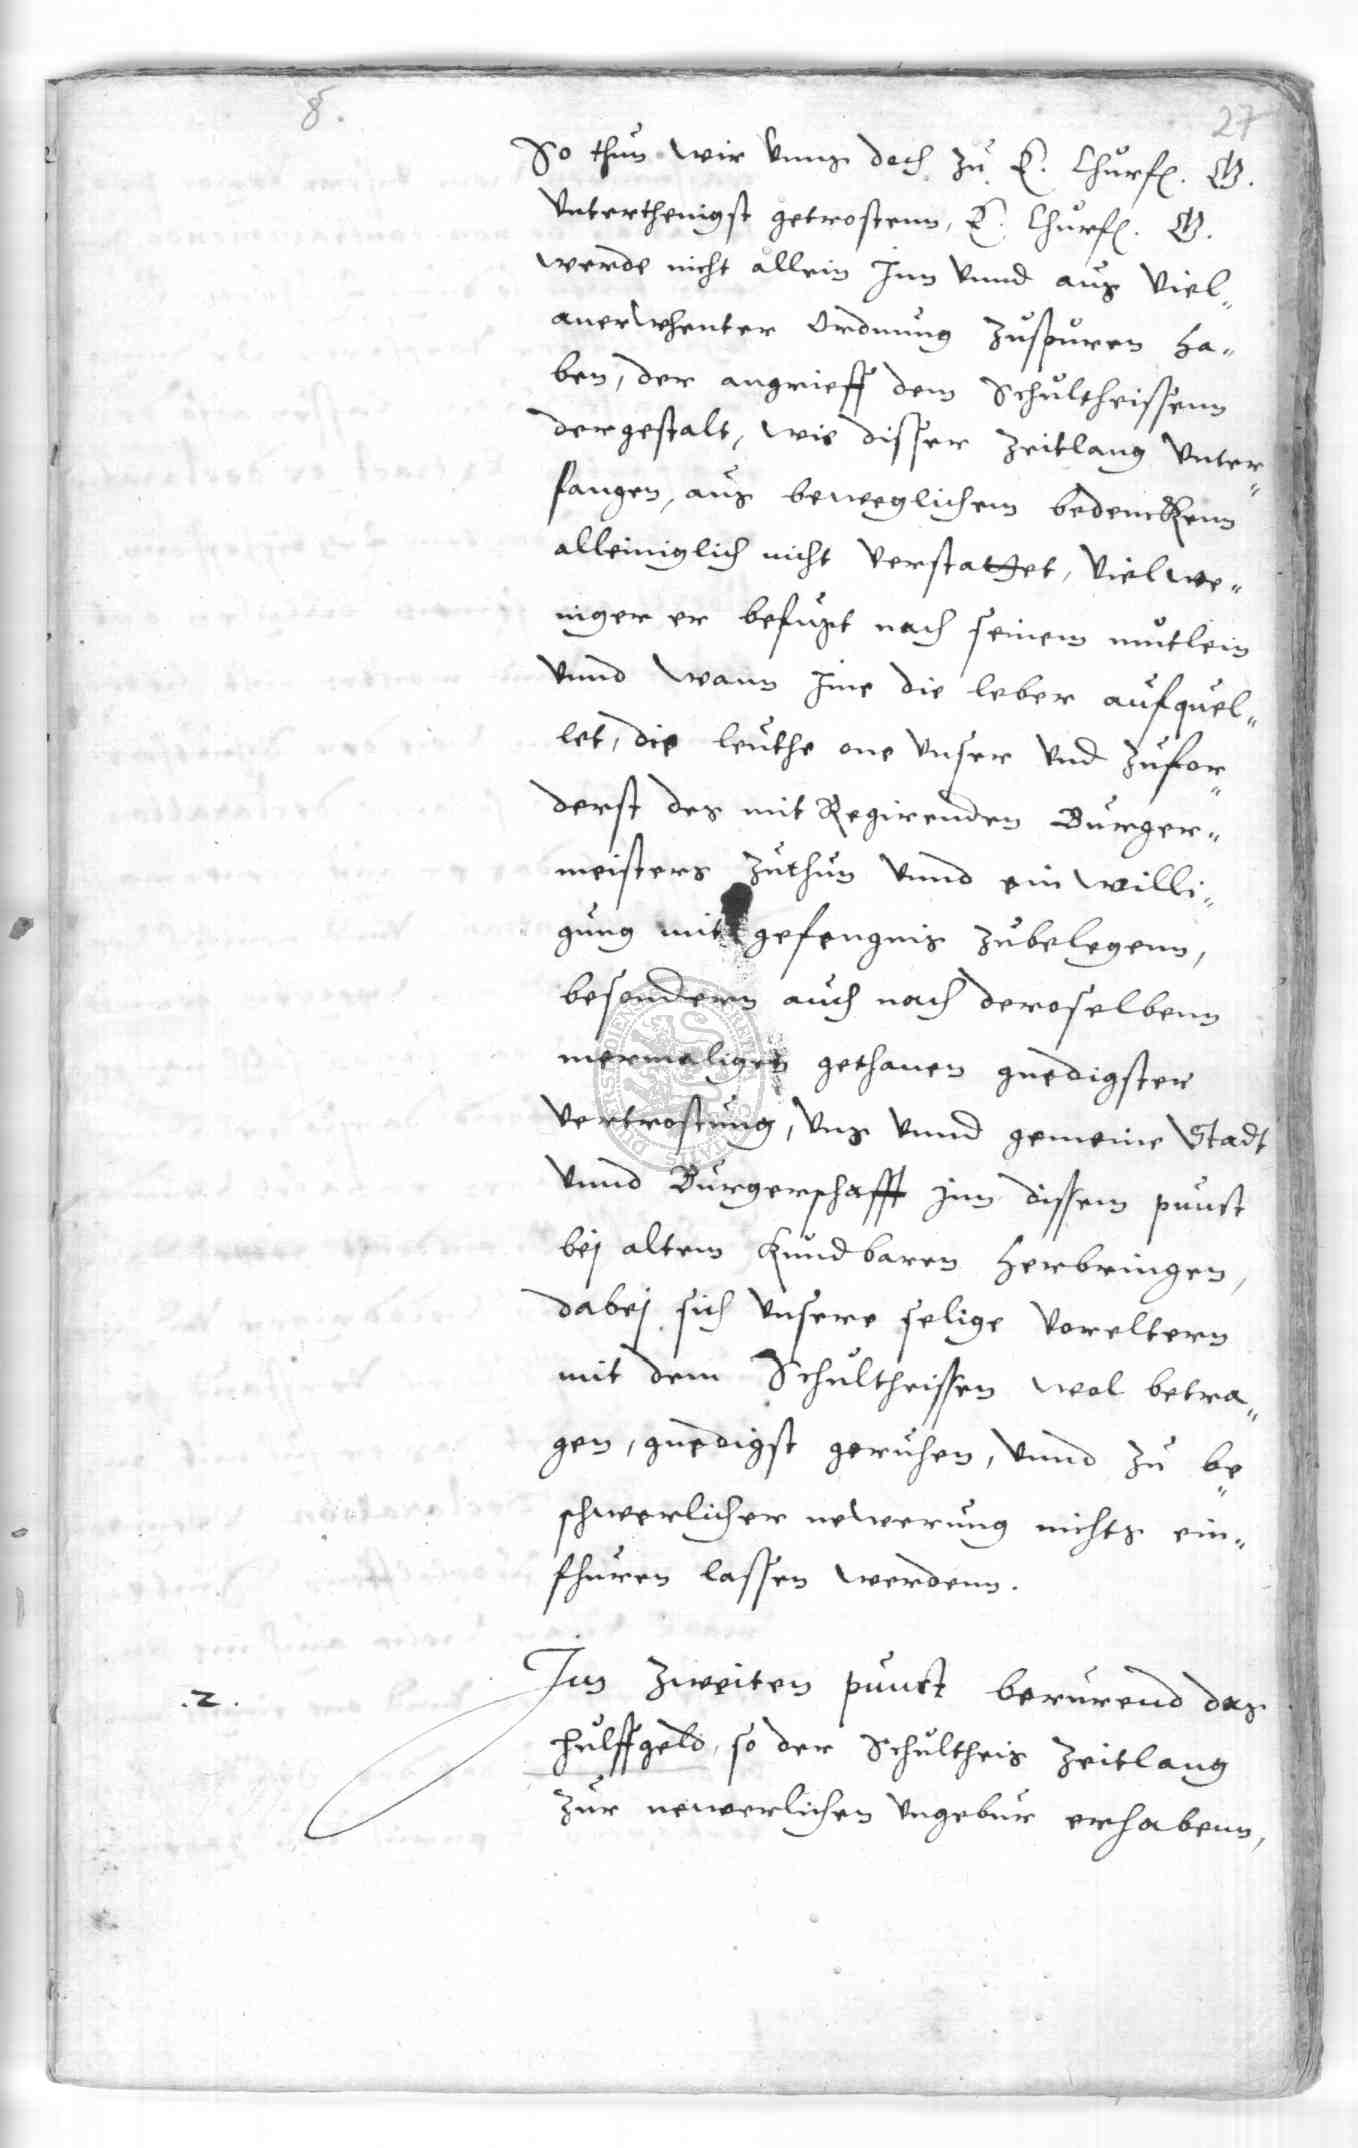 8.
27
So thun wir vnns doch zu E. Churf. G.
vnterthenigst getrostenn, E. Churf. G.
werde nicht allein Jnn vnnd aus viel„
anerwhenter Ordnung zuspuren ha„
ben, der angrieff dem Schultheissenn
dergestalt, wie disser Zeitlang vnter„
fangen, aus beweglichem bedenckenn
alleiniglich nicht verstattet, vielwe„
niger er befugt nach seinem mutlein
vnnd wann Jme die leber aufquel„
let, die leuthe one vnser vnd zufor„
derst des mit Regirenden Burger„
meisters zuthun vnnd einwilli„
gung mit gefengnis zubelegenn,
besondern auch nach deroselbenn
mermaligen gethanen gnedigster
vertrostung, vns vnnd gemeine Stadt
vnnd Burgerschafft Jnn dissem punct
bej altem kundbaren herbringen,
dabej sich vnsere selige voreltern
mit dem Schultheissen wol betra„
gen, gnedigst geruhen, vnnd zu be„
schwerlicher newerung nichts ein„
fhuren lassen werdenn.
.2.
Jm zweiten punct berurend das
hulffgeld, so der Schultheis Zeitlang
zur newerlichen vngebur erhabenn,